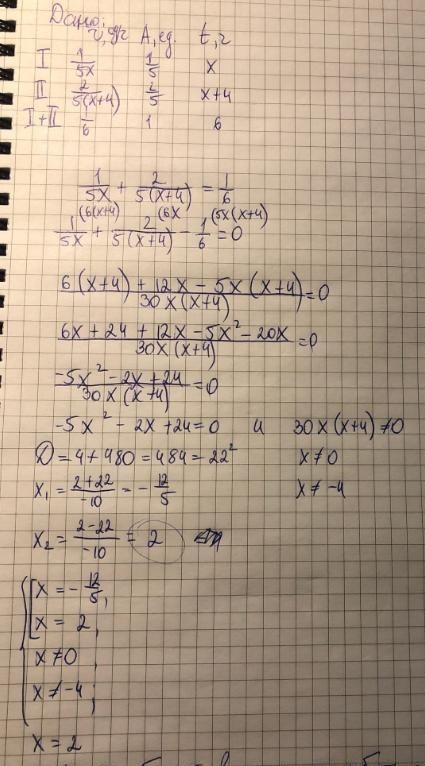 Дано:
v, д/г A, ед. t, г
I 1/5x 1/5 x
II 2/5(x+4) 2/5 x+4
I+II 1/6 1 6
1/5x + 2/5(x+4) = 1/6
1/5x (6(x+4) + 2/5(x+4) (6x - 1/6 (5x(x+4) = 0
6(x+4) + 12x - 5x(x+4) / 30x(x+4) = 0
6x + 24 + 12x - 5x² - 20x / 30x(x+4) = 0
-5x² - 2x + 24 / 30x(x+4) = 0
-5x² - 2x + 24 = 0 и 30x(x+4) ≠ 0
D = 4 + 480 = 484 = 22² x ≠ 0
x₁ = 2+22 / -10 = - 12/5 x ≠ -4
x₂ = 2-22 / -10 = 2
x = - 12/5,
x = 2,
x ≠ 0,
x ≠ -4;
x = 2